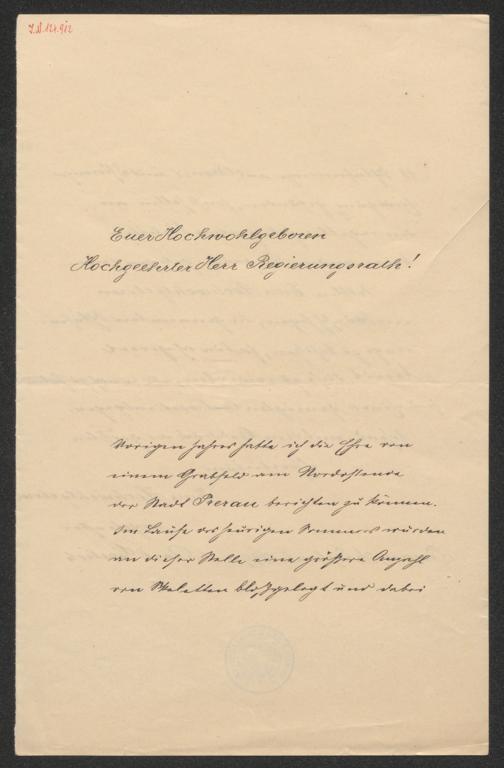 I.N. 124.912
Euer Hochwohlgeboren
Hochgeehrter Herr Regierungsrath!
Vorigen Jahres hatte ich die Ehre von
einem Grabfeld am Nordostende
der Stadt Prerau berichten zu können.
Im Laufe des heurigen Sommers wurden
an dieser Stelle eine größere Anzahl
von Skeletten bloßgelegt und dabei